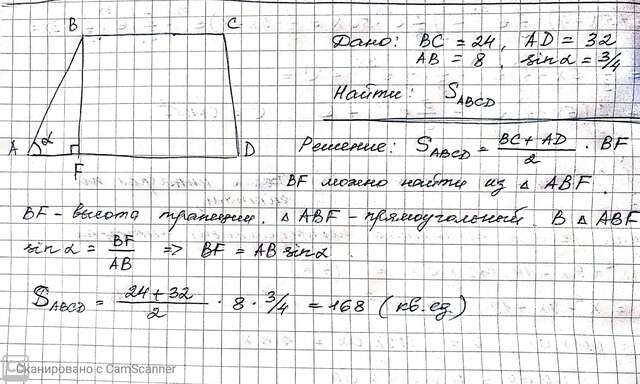 B C
A α F D
Дано: BC = 24, AD = 32
AB = 8, sinα = 3/4
Найти: S_ABCD
Решение: S_ABCD = (BC + AD)/2 · BF
BF можно найти из △ ABF.
BF - высота трапеции. △ ABF - прямоугольный. В △ ABF
sinα = BF/AB => BF = AB sinα
S_ABCD = (24 + 32)/2 · 8 · 3/4 = 168 (кв. ед)
CS Сканировано с CamScanner